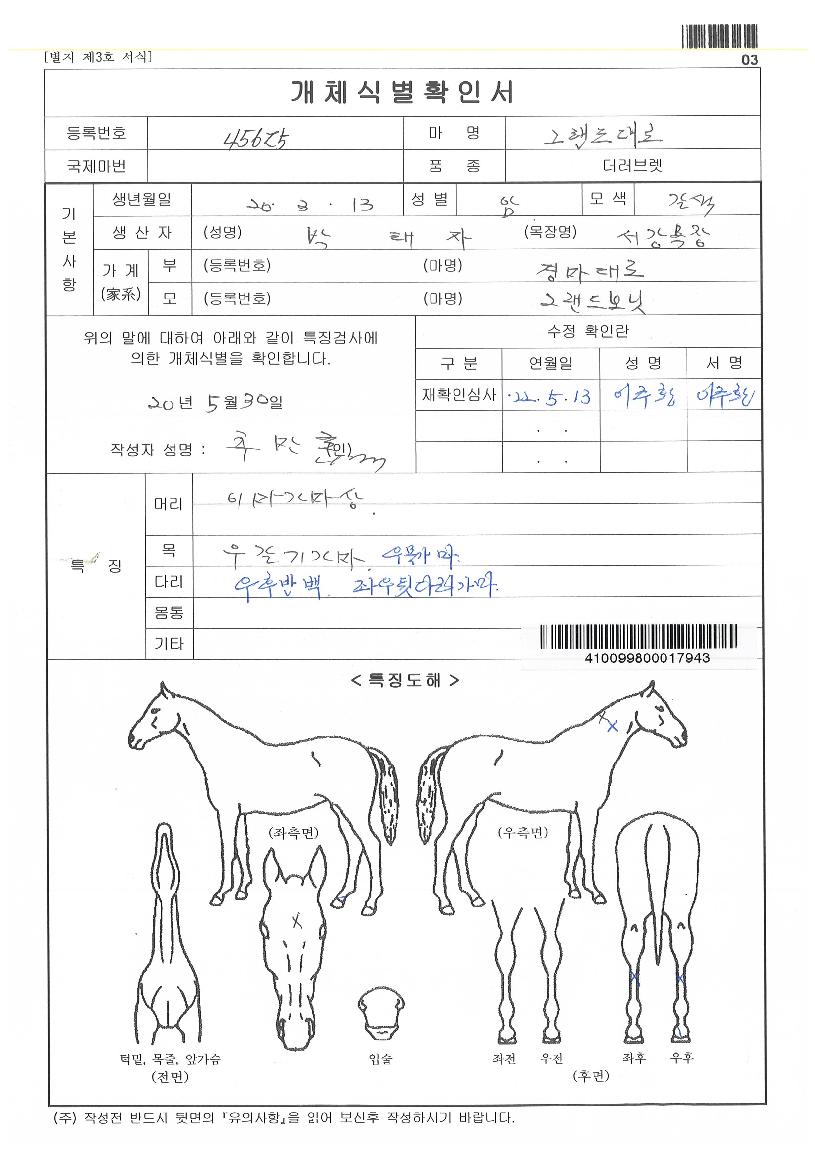 [별지 제3호 서식]
03
개체식별확인서
등록번호 마 명 그랜드대로
국제마번 품 종 더러브렛
기본사항
생년월일 20. 3. 13 성별 암 모색 갈색
생 산 자 (성명) 박 태 자 (목장명) 서강목장
가 계 (家系)
부 (등록번호) (마명) 경마대로
모 (등록번호) (마명) 그랜드보닛
위의 말에 대하여 아래와 같이 특징검사에
의한 개체식별을 확인합니다.
20년 5월 30일
작성자 성명 : 추 만 (인)
수정 확인란
구 분 연월일 성 명 서 명
재확인심사 22. 5. 13
. .
. .
특 징
머리
목
다리 우후반백. 좌우뒷다리가마.
몸통
기타
410099800017943
< 특징도해 >
(좌측면) (우측면)
턱밑, 목줄, 앞가슴 입술 좌전 우전 좌후 우후
(전면) (후면)
(주) 작성전 반드시 뒷면의 『유의사항』을 읽어 보신후 작성하시기 바랍니다.